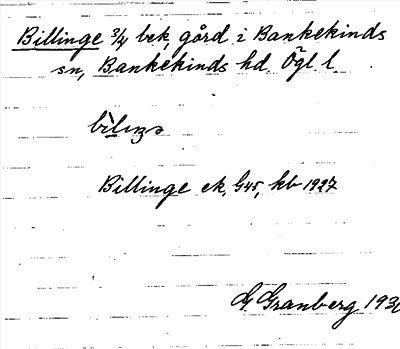 Billinge 3/4 bek, gård i Bankekinds
sn, Bankekinds hd. Ögl. l.
Billinge ek, G45, kb 1927
G. Granberg 193